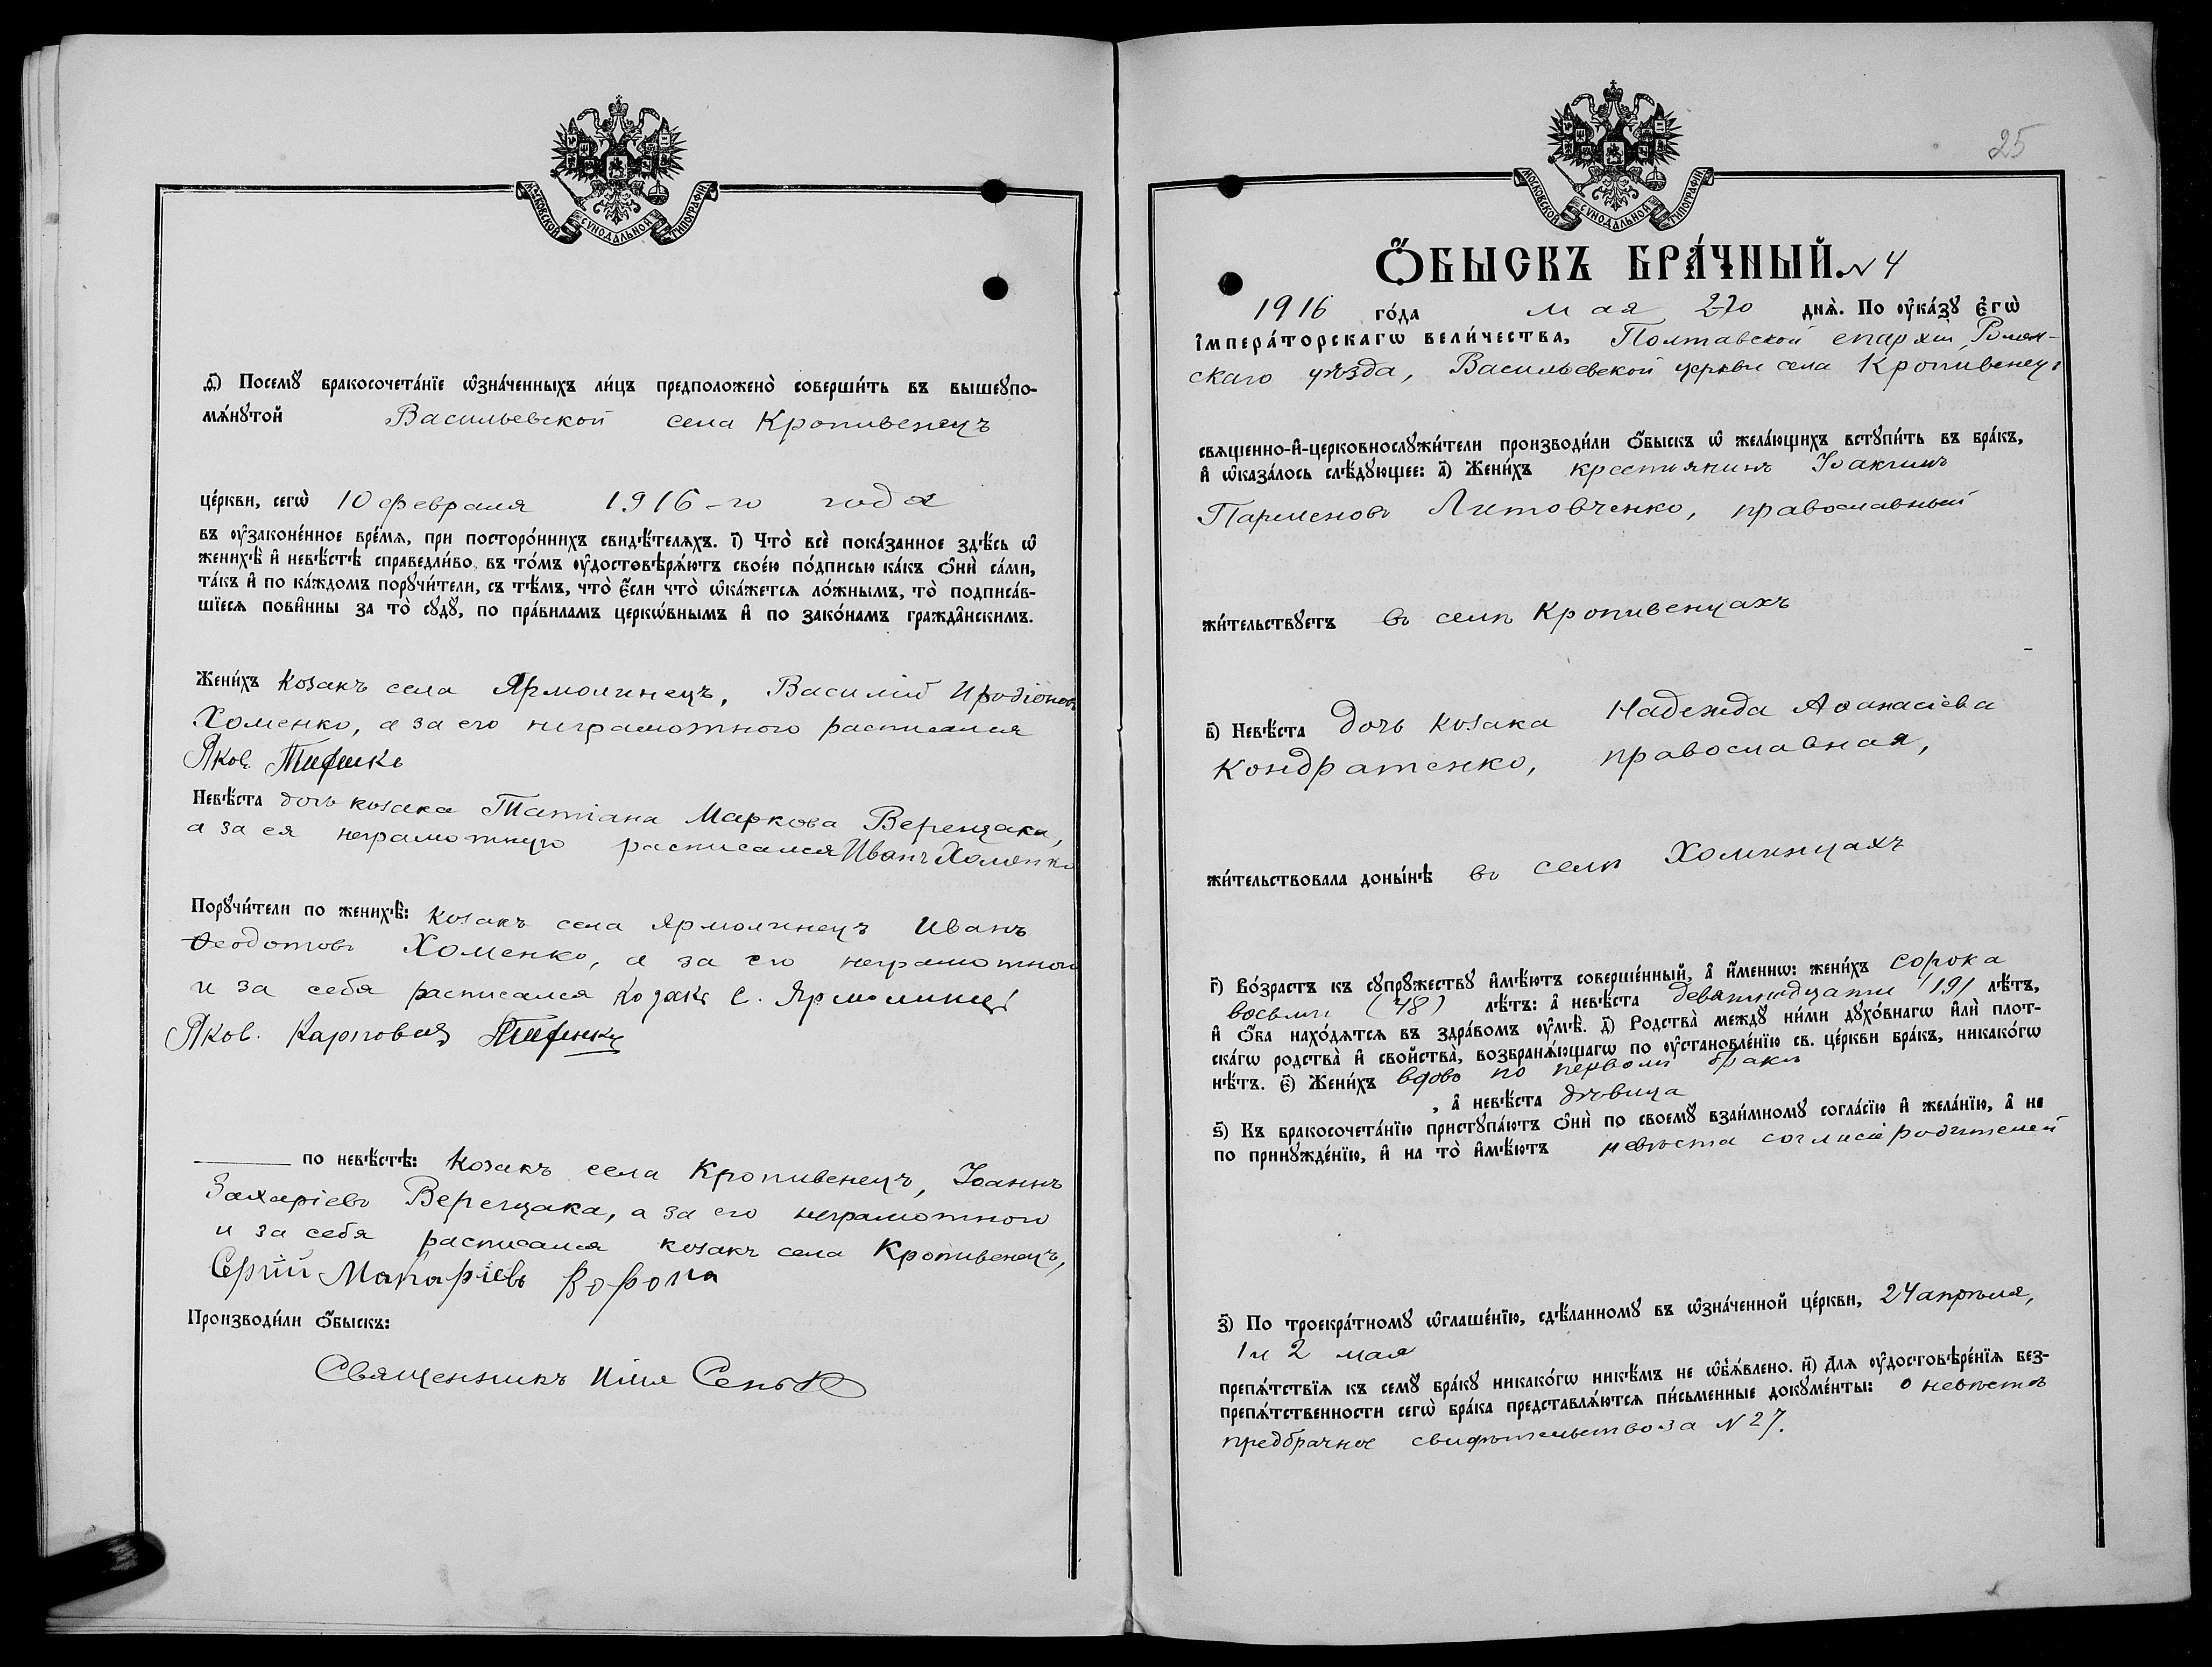 МОСКОВСКОЙ СУНОДАЛЬНОЙ ТИПОГРАФІИ
ѳ҃) Посемꙋ бракосочета́нїе ѡ҆зна́ченныхъ ли́цъ предположено̀ соверши́ть въ вышеꙋпо-
мѧ́нꙋтой Васильевской села Кропивенецъ
це́ркви, сегѡ̀ 10 февраля 1916-го года
въ ᲂу҆законе́нное вре́мѧ, при посторо́ннихъ свидѣ́телѧхъ. і҃) Что̀ всѐ пока́занное здѣ́сь ѡ҆
женихѣ̀ и҆ невѣ́стѣ справедли́во, въ то́мъ ᲂу҆достовѣрѧ́ютъ свое́ю по́дписью ка́къ ѻ҆нѝ са́ми,
та́къ и҆ по ка́ждомъ порꙋчи́тели, съ тѣ́мъ, что̀ є҆́сли что̀ ѡ҆ка́жетсѧ ло́жнымъ, то̀ подписа́в-
шїесѧ пови́нны за то̀ сꙋдꙋ̀, по пра́виламъ церкѡ́внымъ и҆ по зако́намъ гражда́нскимъ.
Жени́хъ козакъ села Ярмолинецъ, Василій Иродіоновъ
Хоменко, а за его неграмотного расписался
Яков.
Невѣ́ста дочь козака Татіана Маркова Верещака,
а за ея неграмотную расписался Иванъ Хоменко
Порꙋчи́тели по женихѣ̀: козакъ села Ярмолинецъ Иванъ
Ѳеодотовъ Хоменко, а за его неграмотного
и за себя расписался козакъ с. Ярмолинец
Яков. Карпович
по невѣ́стѣ: козакъ села Кропивенецъ, Іоаннъ
Захаріевъ Верещака, а за его неграмотного
и за себя расписался козакъ села Кропивенецъ,
Сергій Макаріевъ Ворона
Производи́ли ѻ҆́быскъ:
Священникъ Илія
25
МОСКОВСКОЙ СУНОДАЛЬНОЙ ТИПОГРАФІИ
Ѻ҆́БЫСКЪ БРА́ЧНЫЙ. N 4
1916 го́да мая 2-го днѧ̀. По ᲂу҆ка́зꙋ є҆гѡ̀
і҆мпера́торскагѡ вели́чества, Полтавской епархіи Ромен-
скаго уѣзда, Васильевской церкви села Кропивенецъ
свѧще́нно-и҆-церковнослꙋжи́тели производи́ли ѻ҆́быскъ ѡ҆ жела́ющихъ встꙋпи́ть въ бра́къ,
и҆ ѡ҆каза́лось слѣ́дꙋющее: а҃) Жени́хъ крестьянинъ Іоакимъ
Парменовъ Литовченко, православный
жи́тельствꙋетъ въ селѣ Кропивенцахъ
в҃) Невѣ́ста дочь козака Надежда Аѳанасіева
Кондратенко, православная,
жи́тельствовала доны́нѣ въ селѣ Хоминцахъ
г҃) Во́зрастъ къ сꙋпрꙋ́жествꙋ и҆мѣ́ютъ соверше́нный, а҆ и҆́меннѡ: жени́хъ сорока
восьми (48) лѣ́тъ: а҆ невѣ́ста девятнадцати (19) лѣ́тъ,
и҆ ѻ҆́ба нахо́дѧтсѧ въ здра́вомъ ᲂу҆мѣ̀. д҃) Родства̀ междꙋ ни́ми дꙋхо́внагѡ и҆лѝ плот-
ска́гѡ родства̀ и҆ сво́йства, возбранѧ́ющагѡ по ᲂу҆становле́нїю св. це́ркви бра́къ, никако́гѡ
нѣ́тъ. є҃) Жени́хъ вдовъ по первомъ бракѣ
, а҆ невѣ́ста дѣвица
ѕ҃) Къ бракосочета́нїю пристꙋпа́ютъ ѻ҆нѝ по своемꙋ̀ взаи́мномꙋ согла́сїю и҆ жела́нїю, а҆ не
по принꙋжде́нїю, и҆ на то̀ и҆мѣ́ютъ невѣста согласіе родителей
з҃) По троекра́тномꙋ ѡ҆глаше́нїю, сдѣ́ланномꙋ въ ѡ҆зна́ченной це́ркви, 24 апрѣля,
1 и 2 мая
препѧ́тствїѧ къ семꙋ̀ бра́кꙋ никако́гѡ никѣ́мъ не ѡ҆б̾ѧ́влено. и҃) Длѧ ᲂу҆достовѣре́нїѧ без-
препѧ́тственности сегѡ̀ бра́ка представлѧ́ютсѧ пи́сьменные докꙋме́нты: о невѣстѣ
предбрачное свидѣтельство за N 27.